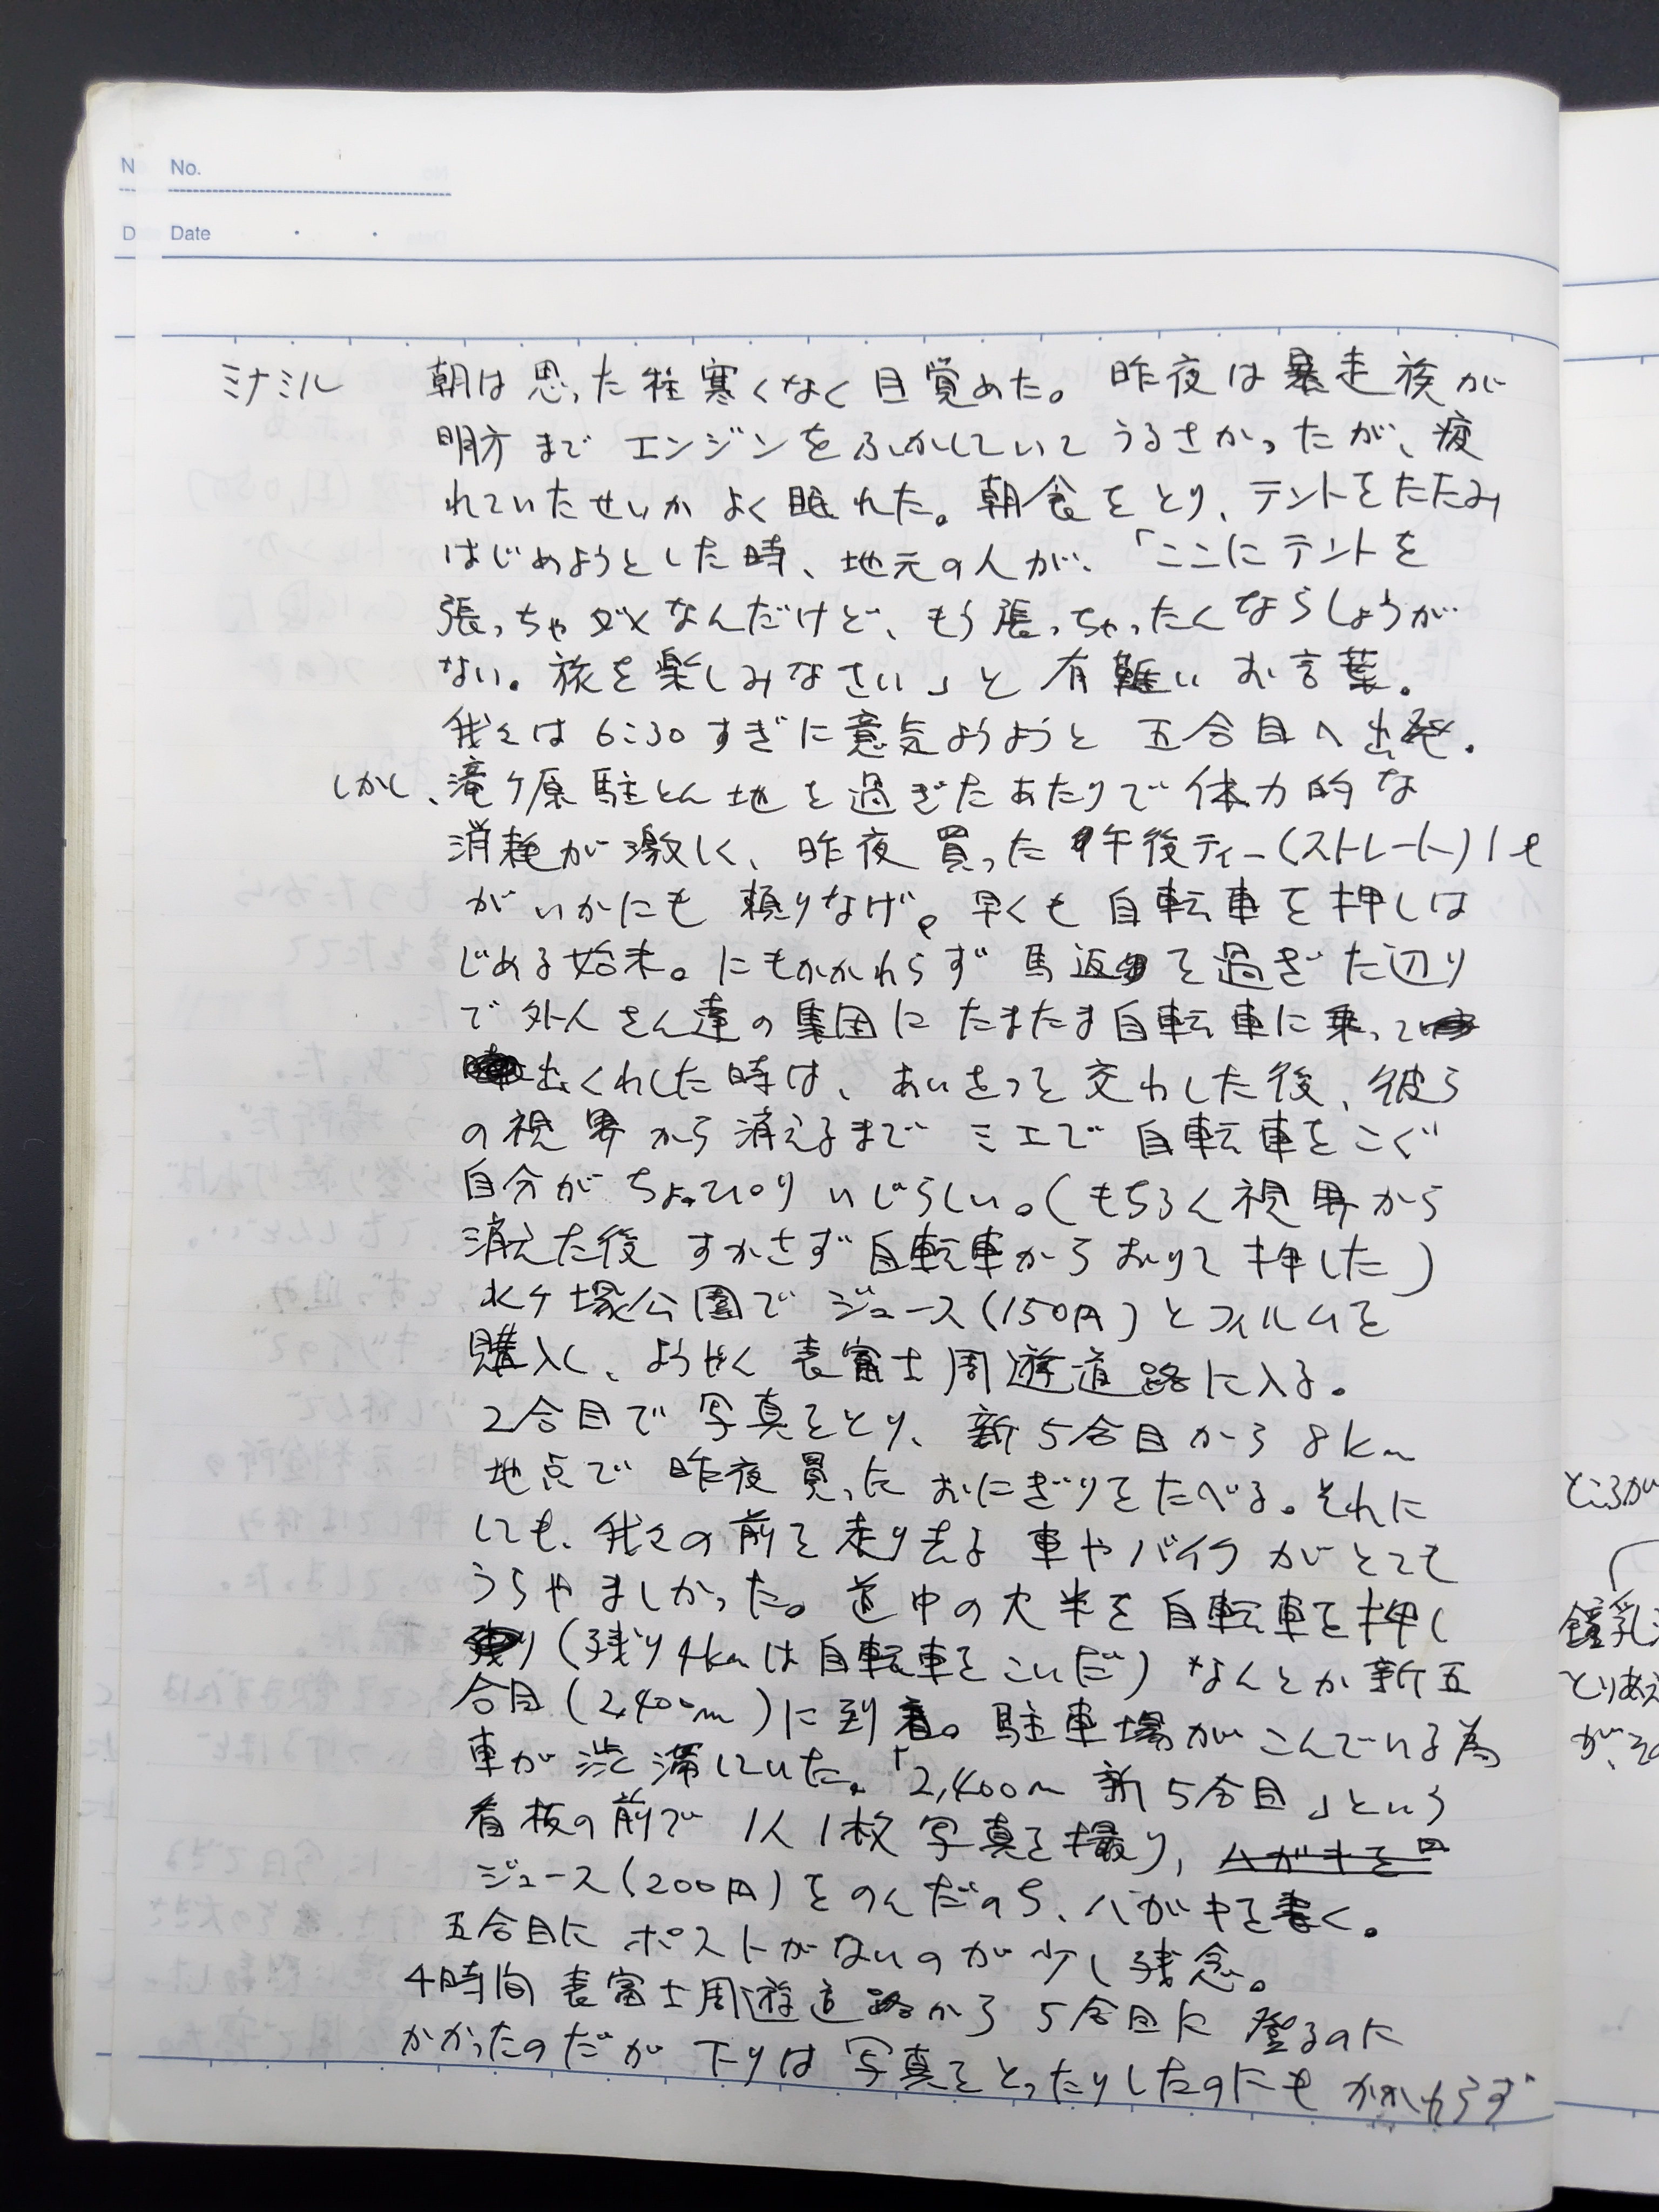 No.
Date
ミナミル 朝は思った程寒くなく目覚めた。昨夜は暴走族が
明方までエンジンをふかしていてうるさかったが、疲
れていたせいかよく眠れた。朝食をとり、テントをたたみ
はじめようとした時、地元の人が、「ここにテントを
張っちゃダメなんだけど、もう張っちゃったんならしょうが
ない。旅を楽しみなさい」と有難いお言葉。
我々は6:30すぎに意気ようようと五合目へ出発。
しかし、滝ヶ原駐とん地を過ぎたあたりで体力的な
消耗が激しく、昨夜買った午後ティー(ストレート)1ℓ
がいかにも頼りなげ。早くも自転車を押しは
じめる始末。にもかかわらず馬返を過ぎた辺り
で外人さん達の集団にたまたま自転車に乗って
出くわした時は、あいさつを交わした後、彼ら
の視界から消えるまでミエで自転車をこぐ
自分がちょっぴりいじらしい。(もちろん視界から
消えた後すかさず自転車からおりて押した)
水ヶ塚公園でジュース(150円)とフィルムを
購入し、ようやく表富士周遊道路に入る。
2合目で写真をとり、新5合目から8km
地点で昨夜買ったおにぎりをたべる。それに
しても、我々の前を走り去る車やバイクがとても
うらやましかった。道中の大半を自転車を押し
(残り4kmは自転車をこいだ)なんとか新五
合目(2,400m)に到着。駐車場がこんでいる為
車が渋滞していた。「2,400m 新5合目」という
看板の前で1人1枚写真を撮り、ハガキを
ジュース(200円)をのんだのち、ハガキを書く。
五合目にポストがないのが少し残念。
4時間表富士周遊道路から5合目に登るのに
かかったのだが下りは写真をとったりしたのにもかかわらず
ところが
鐘乳
とりあえ
が、その